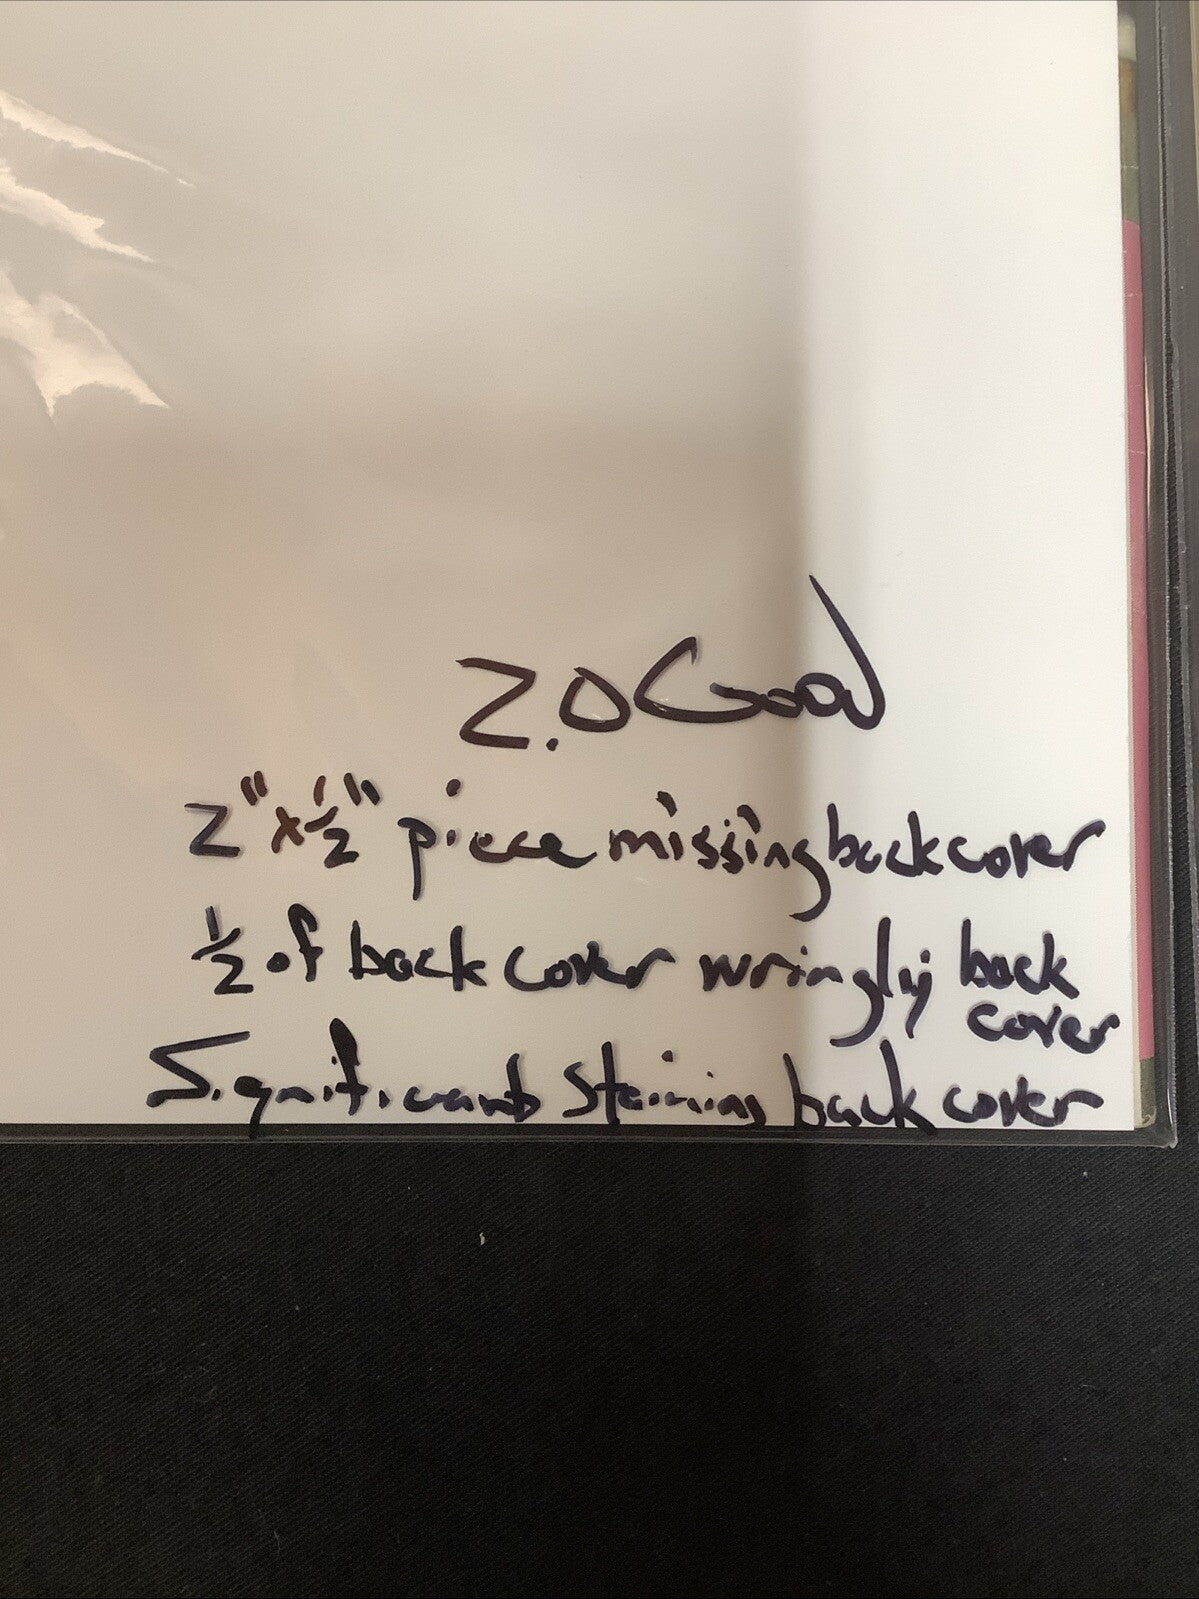 2.0 Good
2" x 1/2" piece missing back cover
1/2 of back cover wringly back
cover
Significant staining back cover